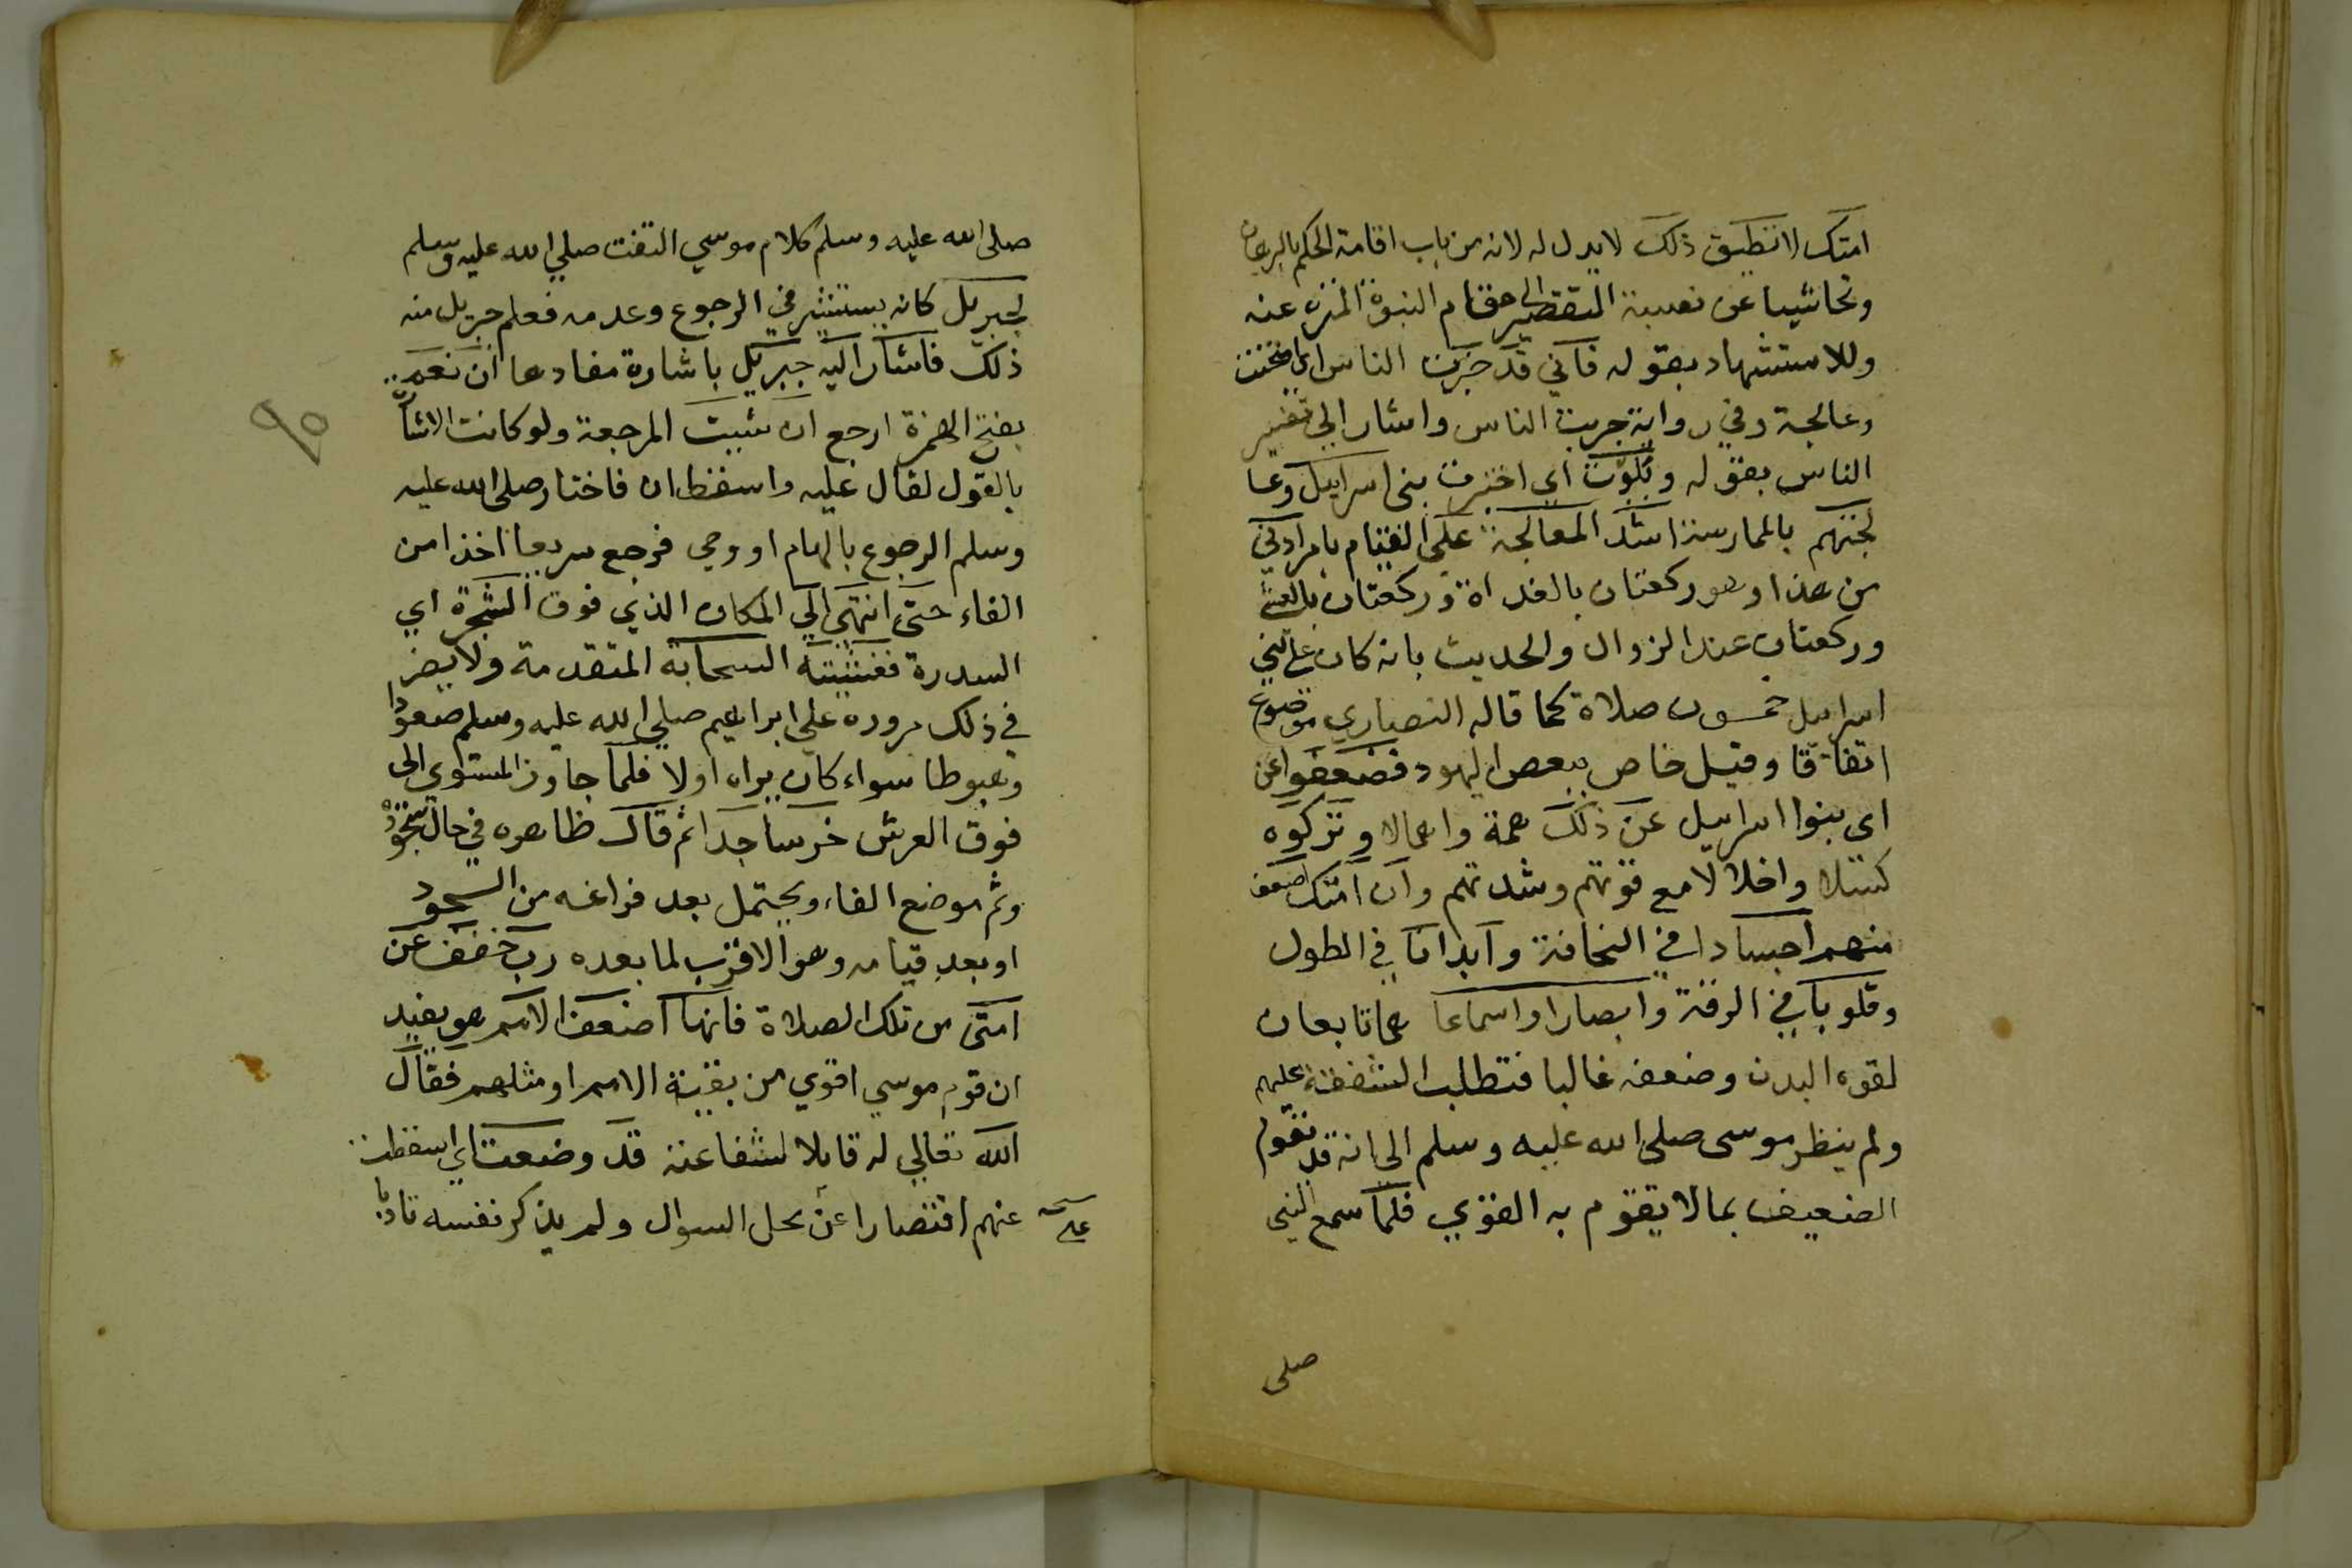 امتك لا تطيق ذلك لا بدل له لانه من باب اقامة الحكم بالبرهان
وتحاشيا عن نسبة التقصير الى مقام النبوة المنزه عنه
وللاستشهاد بقوله فاني قد خبرت الناس اي امتحنت
وعالجة وفي رواية جربت الناس واشار الي تفسير
الناس بقوله وبلوت اي اختبرت بني اسراييل وعا
لجتهم بالممارسة اشد المعالجة علي القيام بامر ادني
من هذا وهو ركعتان بالغداة وركعتان بالعشي
وركعتان عند الزوال والحديث بانه كان علي بني
اسراييل خمسون صلاة كما قاله النصاري موضوع
اتفاقا وقيل خاص ببعض اليهود فضعفوا عن
اى بنوا اسراييل عن ذلك همة واهمالا وتركوه
كسلا واخلالا مع قوتهم وشدتهم وان امتك اضعف
منهم اجسادا في النحافة وابدانا في الطول
وقلوبا في الرقة وابصارا واسماعا هما تابعان
لقوه البدن وضعفه غالبا فتطلب الشفقة عليهم
ولم ينظر موسى صلى الله عليه وسلم الي انه قد تقوم
الضعيف بما لا يقوم به القوي فلما سمع النبي
صلى
صلى الله عليه وسلم كلام موسي التفت صلي الله عليه وسلم
لجبريل كانه يستشير في الرجوع وعدمه فعلم جبريل منه
ذلك فاشار اليه جبريل باشارة مفادها ان نعم
بفتح الهمزة ارجع ان شيت المرجعة ولو كانت الاشارة
بالقول لقال عليه واسقط ان فاختار صلى الله عليه
وسلم الرجوع بالهام او وحي فرجع سريعا اخذا من
الفاء حتي انتهى الي المكان الذي فوق الشجرة اي
السدرة فغشيته السحابة المتقدمة ولا يضر
في ذلك مروره علي ابراهيم صلي الله عليه وسلم صعودا
وهبوطا سواء كان يراه اولا فلما جاوز المستوي الى
فوق العرش خر ساجدا ثم قال ظاهره في حال سجوده
وثم موضع الفاء ويحتمل بعد فراغه من السجود
او بعد قيامه وهو الاقرب لما بعده رب خفف عن
امتى من تلك الصلاة فانها اضعف الامم هو يفيد
ان قوم موسي اقوي من بقية الامم او مثلهم فقال
الله تعالي له قابلا لشفاعته قد وضعت اي اسقطت
عنهم اقتصارا عن محل السوال ولم يذكر نفسه تادبا
علي
٩٥